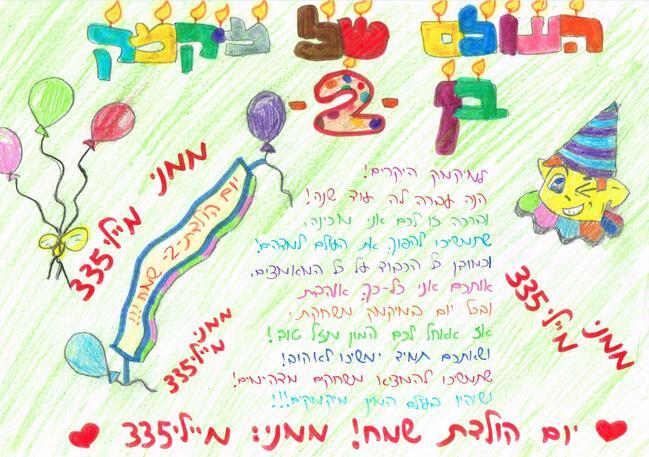 העולם של מיקמק
בן
-2-
ממני מיילי335
יום הולדת -2- שמח!!!
ממני
מיילי335
למיקמק היקרים!
הנה עברה לה עוד שנה!
וברכה זו לכם אני מכינה:
שתמשיכו להפוך את העולם למדהים!
וכמובן כל הכבוד על כל המאמצים,
אותכם אני כל-כך אוהבת
ובכל יום במיקמק משחקת,
אז אאחל לכם המון מזל טוב!
ושאתכם תמיד ימשיכו לאהוב!
שתמשיכו להמציא משחקים מדהימים!
ושיהיו בעולם המון מיקמקים!!!
ממני
מיילי335
יום הולדת שמח! ממני: מיילי335